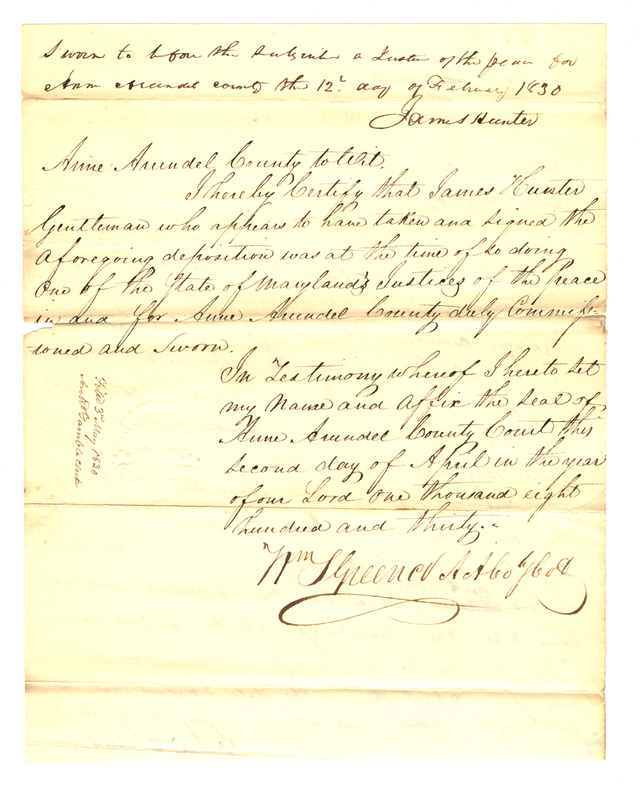 Sworn to before the subscriber a Justice of the peace for
Ann Arundel county the 12th day of February 1830
James Hunter
Anne Arundel County to Wit.
I hereby Certify that James Hunter
Gentleman who appears to have taken and signed the
aforegoing deposition was at the time of so doing
One of the State of Maryland's Justices of the Peace
in and for Anne Arundel County duly Commiss-
ioned and Sworn.
In Testimony whereof I hereto set
my Name and affix the Seal of
Anne Arundel County Court this
second day of April in the year
of our Lord One thousand eight
hundred and thirty.
Wm S Green Clk A A Co
Filed 3d May 1830
Archd Gamble clerk